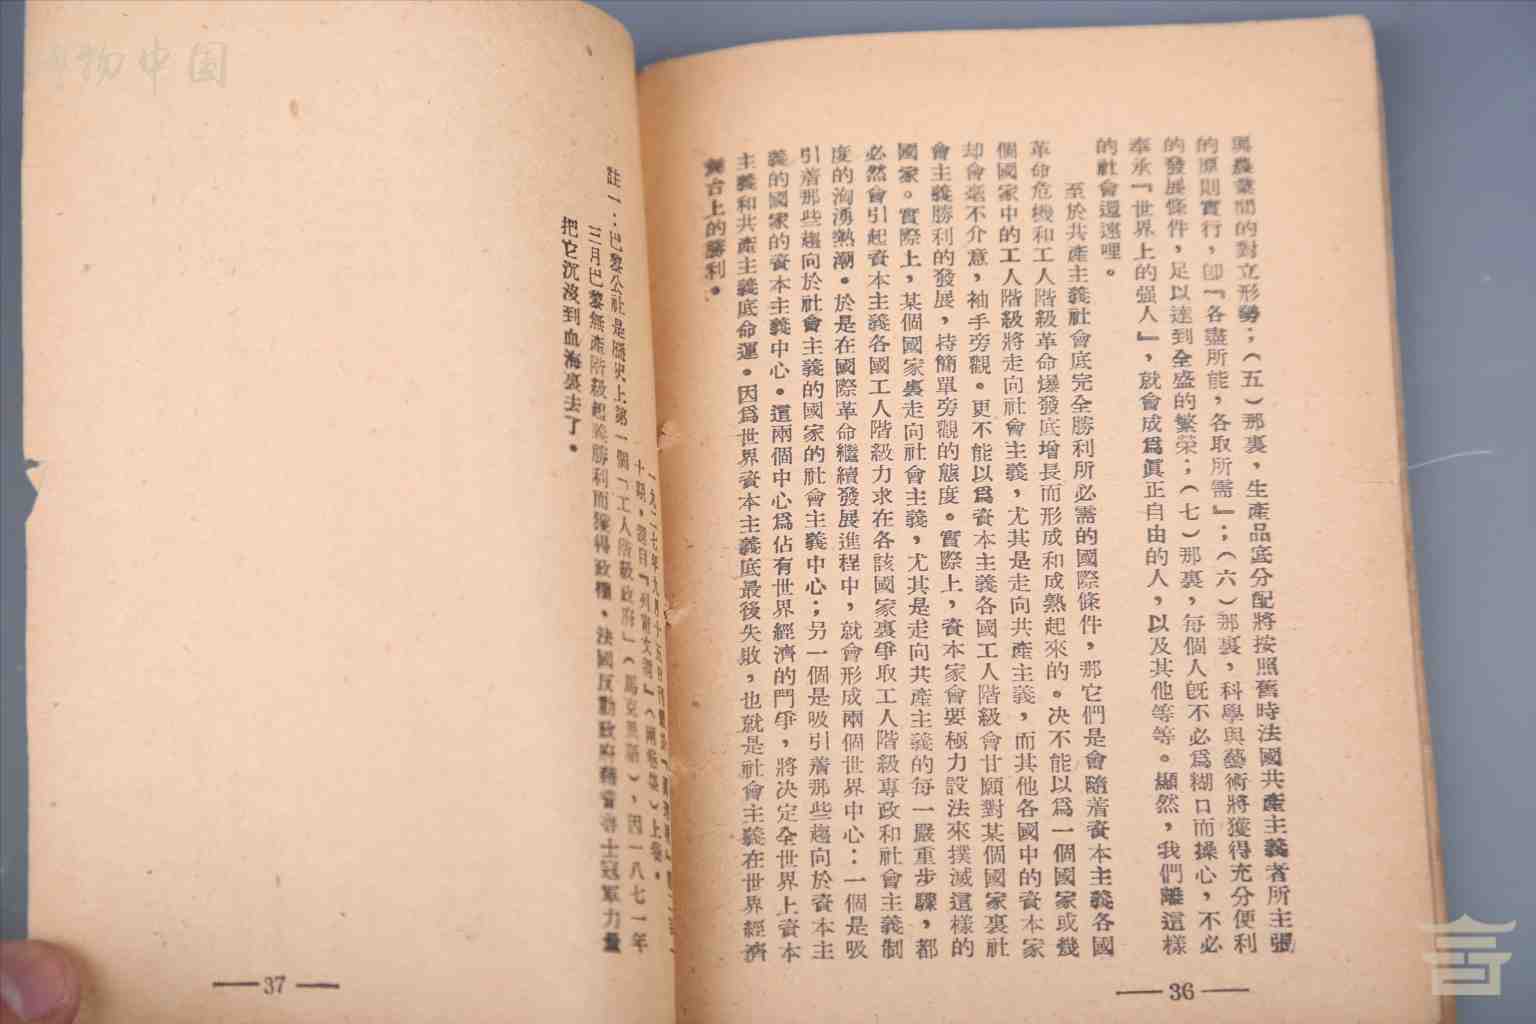 與農業間的對立形勢；（五）那裏，生產品底分配將按照舊時法國共產主義者所主張
的原則實行，卽『各盡所能，各取所需』；（六）那裏，科學與藝術將獲得充分便利
的發展條件，足以達到全盛的繁榮；（七）那裏，每個人旣不必爲糊口而操心，不必
奉承『世界上的强人』，就會成爲眞正自由的人，以及其他等等。顯然，我們離這樣
的社會還遠哩。
至於共產主義社會底完全勝利所必需的國際條件，那它們是會隨着資本主義各國
革命危機和工人階級革命爆發底增長而形成和成熟起來的。决不能以爲一個國家或幾
個國家中的工人階級將走向社會主義，尤其是走向共產主義，而其他各國中的資本家
却會毫不介意，袖手旁觀。更不能以爲資本主義各國工人階級會甘願對某個國家裏社
會主義勝利的發展，持簡單旁觀的態度。實際上，資本家會要極力設法來撲滅這樣的
國家。實際上，某個國家裏走向社會主義，尤其是走向共產主義的每一嚴重步驟，都
必然會引起資本主義各國工人階級力求在各該國家裏爭取工人階級專政和社會主義制
度的洶湧熱潮。於是在國際革命繼續發展進程中，就會形成兩個世界中心：一個是吸
引着那些趨向於社會主義的國家的社會主義中心；另一個是吸引着那些趨向於資本主
義的國家的資本主義中心。這兩個中心爲佔有世界經濟的鬥爭，將决定全世界上資本
主義和共產主義底命運。因爲世界資本主義底最後失敗，也就是社會主義在世界經濟
舞台上的勝利。
— 36 —
一九二七年九月十五日
十期，題目『列甯文選』（兩卷集）上卷。
註一：巴黎公社是歷史上第一個『工人階級政府』（馬克思語），因一八七一年
三月巴黎無產階級起義勝利而獲得政權，法國反動政府藉普魯士冠軍力量
把它沉沒到血海裏去了。
— 37 —
博物中国